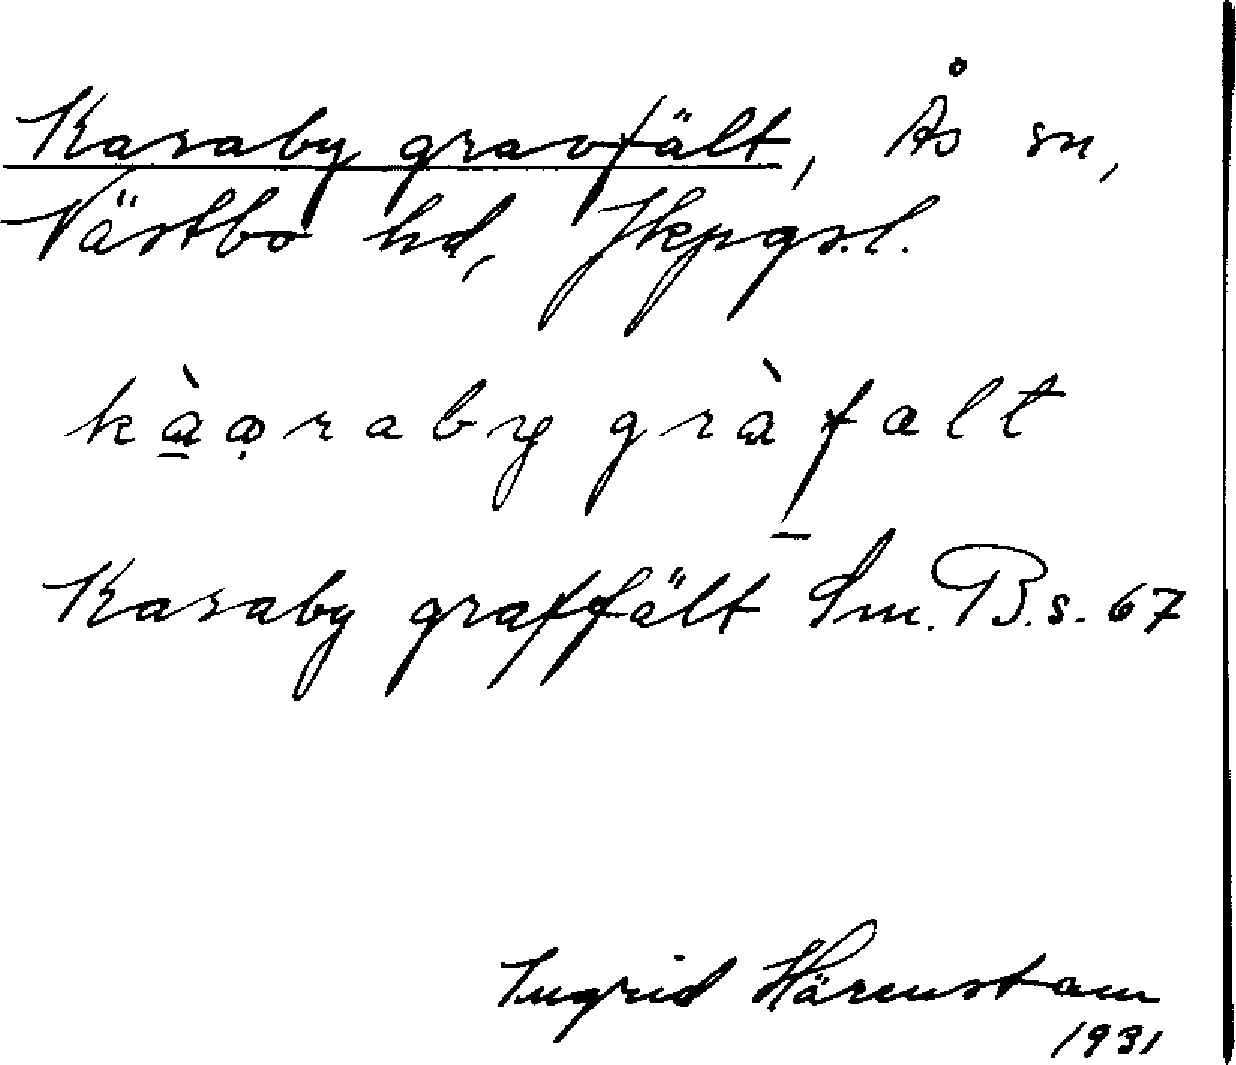 Karaby gravfält, Ås sn,
Västbo hd, Jkpgs.l.
kàǫraby gràfalt
Karaby graffält Sm. B. s. 67
Ingrid Härenstam
1931